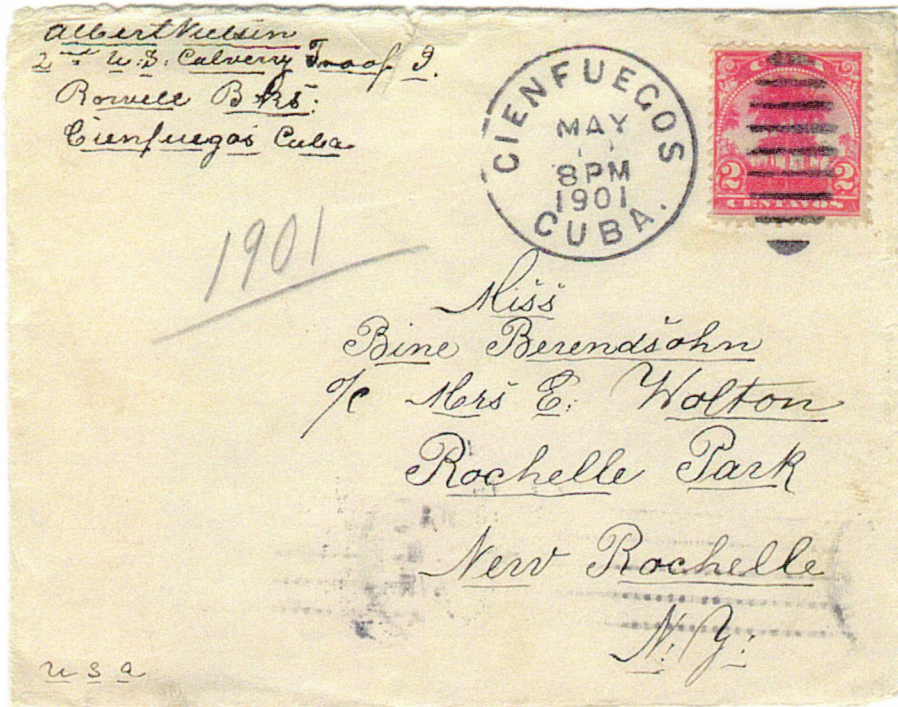 Albert Nielsen
2nd U.S. Calvery Troof I.
Rowell B ks:
Cienfuegos Cuba
CIENFUEGOS
MAY
8PM
1901
CUBA.
2 2
CENTAVOS
1901
Miss
Bine Berendsohn
c/o Mrs E. Walton
Rochelle Park
New Rochelle
N. Y.
U S A